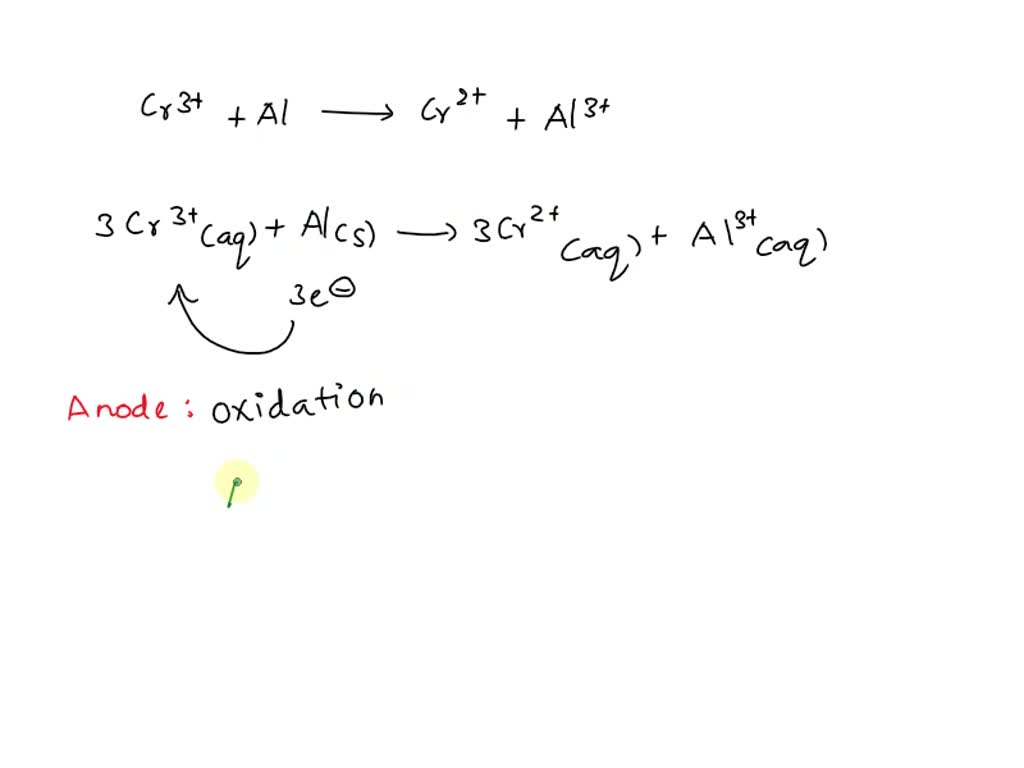 Cr³⁺ + Al ⟶ Cr²⁺ + Al³⁺
3Cr³⁺(aq) + Al(s) ⟶ 3Cr²⁺(aq) + Al³⁺(aq)
3e⊖
Anode : oxidation